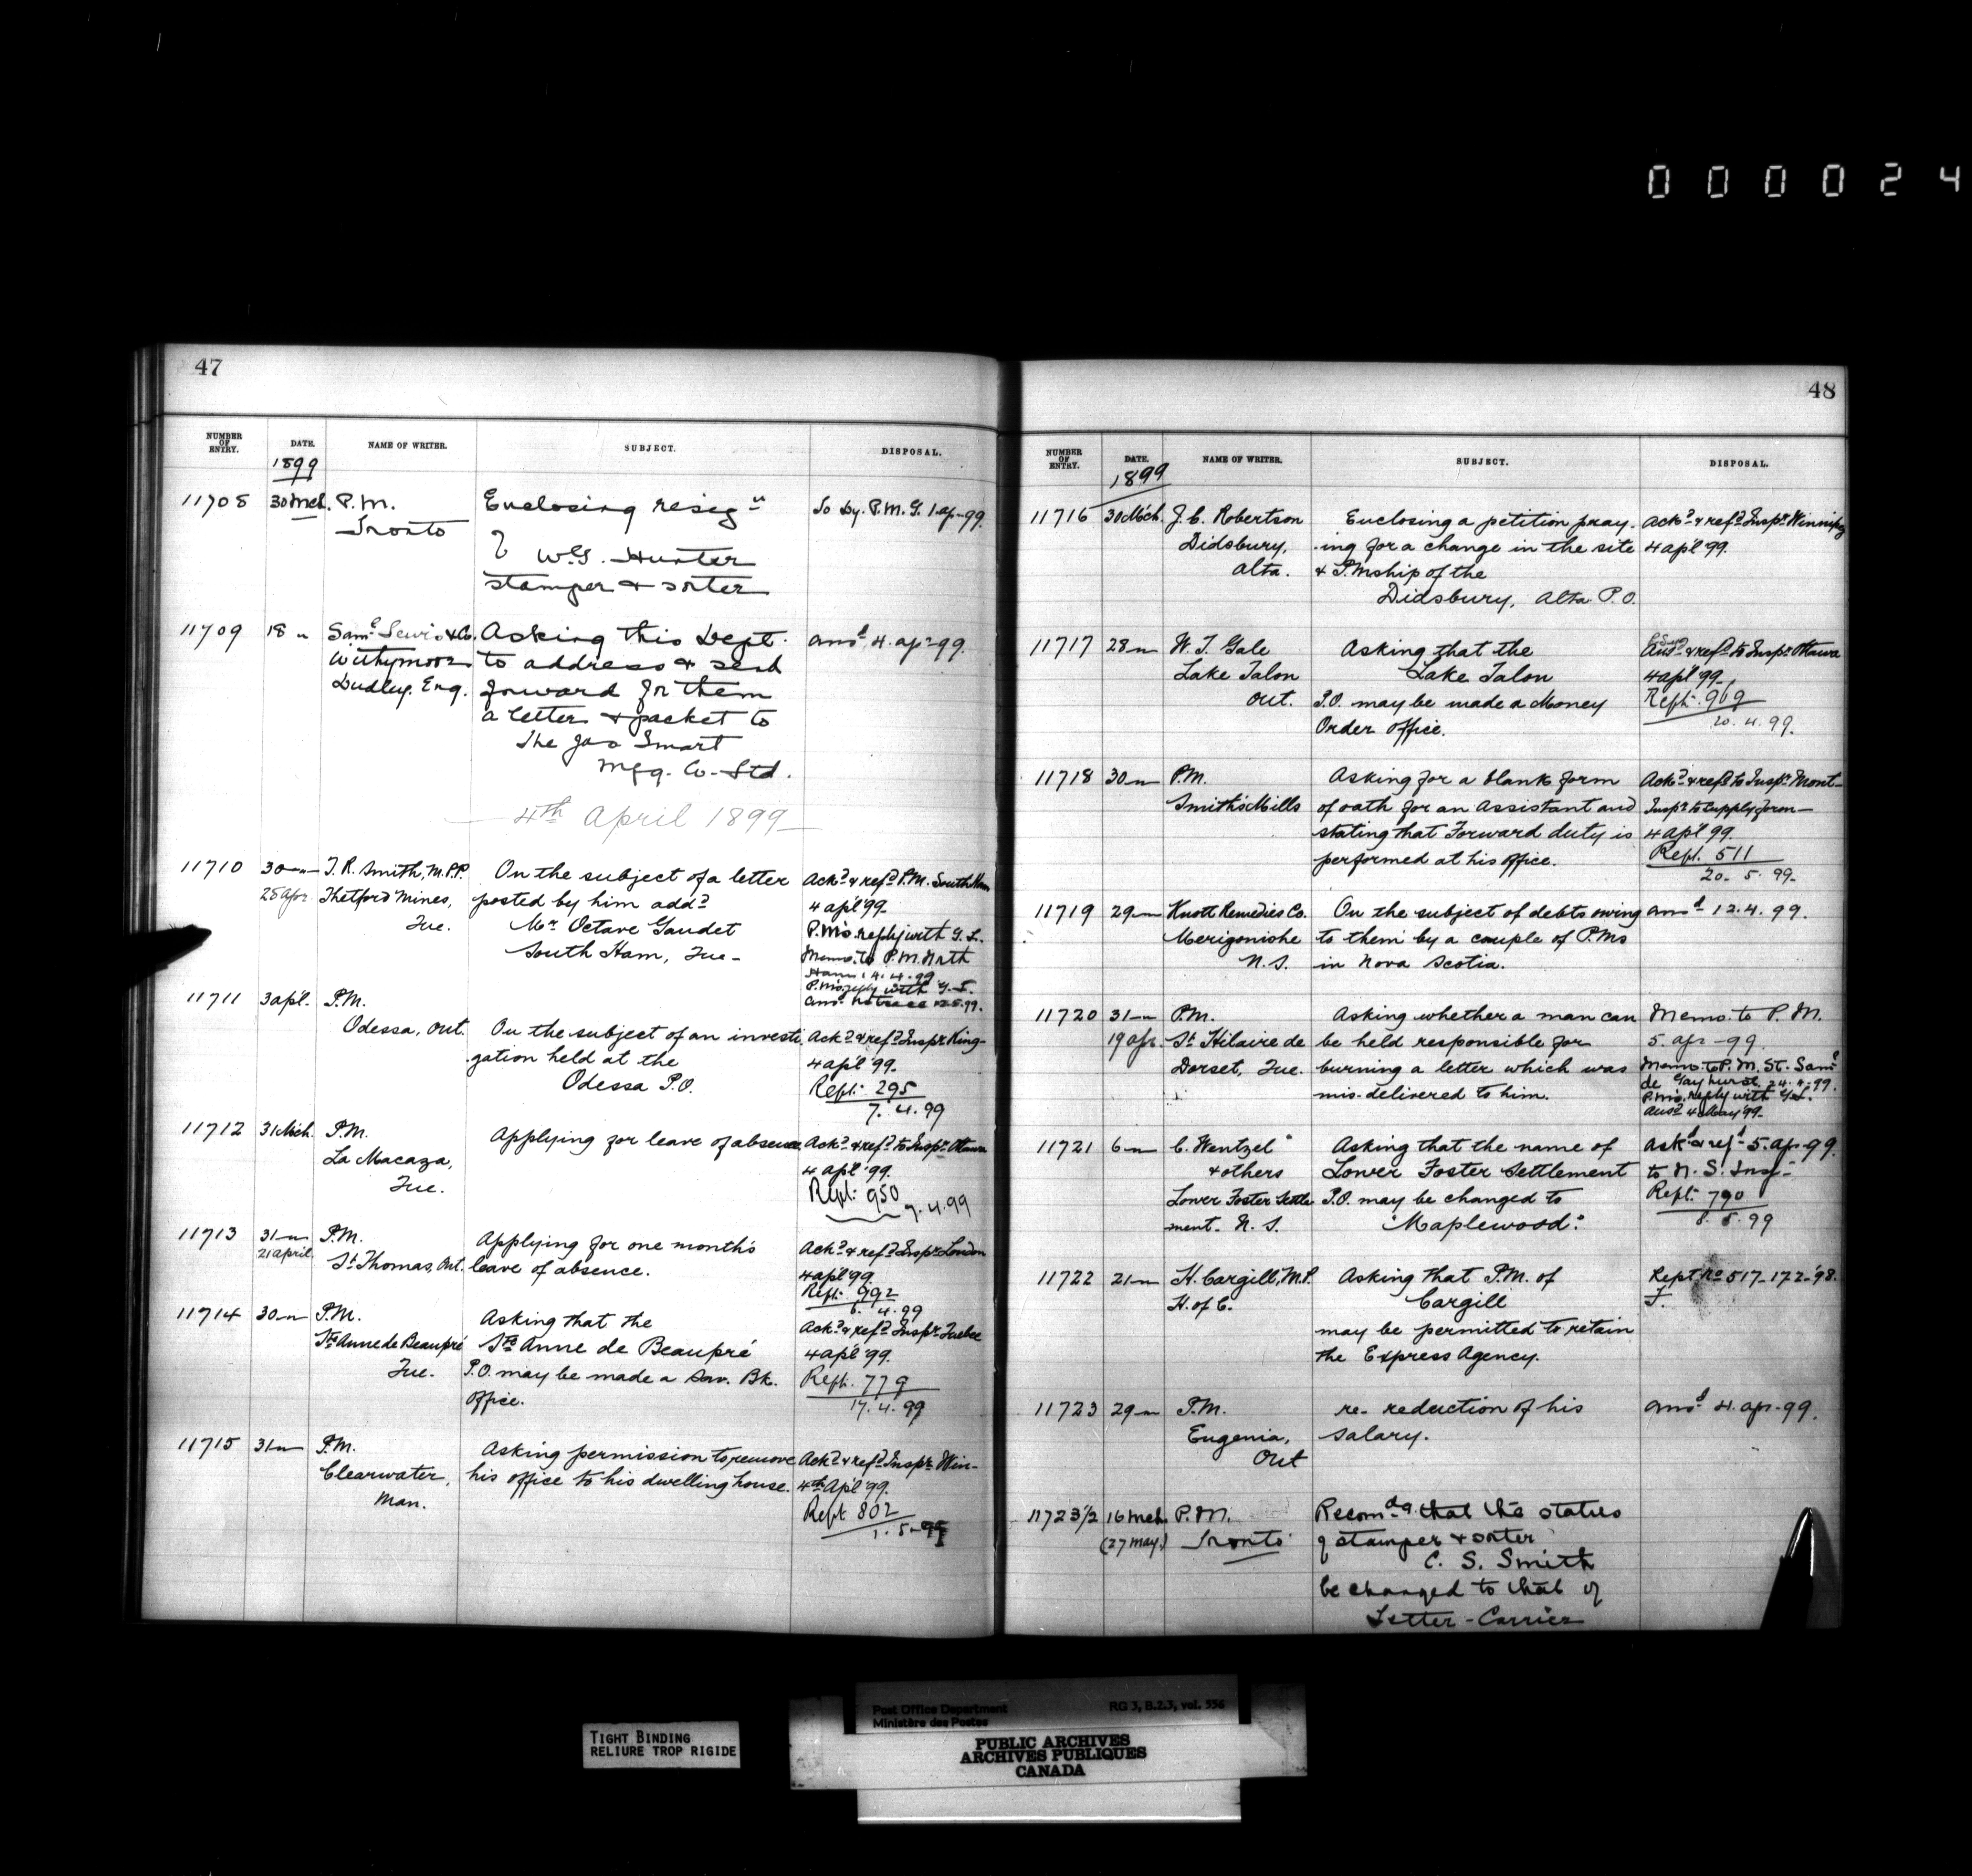 0 0 0 0 2 4
47
NUMBER OF ENTRY. DATE. NAME OF WRITER. SUBJECT. DISPOSAL.
1899
11708 30 Mch. P.M. Enclosing resig.n To Dy. P.M.G. 1-ap-99.
Toronto of
W.G. Hunter
stamper & sorter
11709 18 " Saml Lewis & Co. Asking this Dept. ansd 4.ap-99.
Withymoor to address & send
Dudley. Eng. forward for them
a letter & packet to
The Jas Smart
Mfg. Co. Ltd.
4th April 1899
11710 30 " T. R. Smith, M.P.P. On the subject of a letter Ackd & refd P.M. South Ham
25 apr Thetford Mines, posted by him addd 4 apl '99.
Que. Mr Octave Gaudet P.Ms. reply with G.L.
South Ham, Que- Memo. to P.M. North
Ham 14.4.99
P.Ms. reply with
11711 3 apl. P.M. ansd no trace 12.5.99.
Odessa, Ont. On the subject of an investi- Ackd & refd Inspr King-
gation held at the 4 apl '99.
Odessa P.O. Rept. 295
7. 4. 99
11712 31 Mch. P.M. Applying for leave of absence Ackd & refd to Inspr Ottawa
La Macaza, 4 apl '99.
Que. Rept. 950
7.4.99
11713 31 " P.M. Applying for one month's Ackd & refd Inspr London
21 april St Thomas, Ont. leave of absence. 4 apl '99.
Rept. 992
6. 4. 99
11714 30 " P.M. Asking that the Ackd & refd Inspr Quebec
Ste Anne de Beaupré Ste Anne de Beaupré 4 apl '99.
Que. P.O. may be made a Sav. Bk. Rept. 779
office. 17. 4. 99
11715 31 " P.M. Asking permission to remove Ackd & refd Inspr Win-
Clearwater, his office to his dwelling house. 4th Apl '99.
Man. Rept 802
1. 5-99
48
NUMBER OF ENTRY. DATE. NAME OF WRITER. SUBJECT. DISPOSAL.
1899
11716 30 Mch. J. C. Robertson Enclosing a petition pray- Ackd & refd Inspr Winnipeg
Didsbury, ing for a change in the site 4 apl 99.
Alta. & P.Mship of the
Didsbury, Alta P.O.
11717 28 " W. T. Gale Asking that the Ansd & refd to Inspr Ottawa
Lake Talon Lake Talon 4 apl '99.
Ont. P.O. may be made a Money Rept. 909
Order office. 20. 4. 99.
11718 30 " P.M. Asking for a blank form Ackd & refd to Inspr Mont-
Smith's Mills of oath for an Assistant and Inspr to supply form-
stating that Forward duty is 4 apl 99.
performed at his office. Rept. 511
20. 5. 99.
11719 29 " Knott Remedies Co. On the subject of debts owing ansd 12. 4. 99.
Merigonishe to them by a couple of P.Ms
N.S. in Nova Scotia.
11720 31 " P.M. Asking whether a man can Memo. to P.M.
19 apr St Hilaire de be held responsible for 5. apr -99.
Dorset, Que. burning a letter which was Memo. to P.M. St. Saml
mis-delivered to him. de Gayhurst 24.4.99.
P.Ms. reply with
Ansd 4 May '99.
11721 6 " C. Wentzel Asking that the name of Ackd & refd 5 ap-99.
& others Lower Foster Settlement to N. S. Insp-
Lower Foster Settle P.O. may be changed to Rept. 790
ment. N. S. "Maplewood." 8. 5. 99
11722 21 " H. Cargill, M.P. Asking that P.M. of Rept No 517-172-'98.
H. of C. Cargill F.
may be permitted to retain
the Express Agency.
11723 29 " P.M. re- reduction of his ansd 4. apr-99.
Eugenia, salary.
Ont
11723½ 16 Mch. P.M. Recomdg that the status
(27 May.) Toronto of stamper & sorter
C. S. Smith
be changed to that of
Letter-Carrier
Post Office Department RG 3, B.2.3, vol. 556
Ministère des Postes
TIGHT BINDING
RELIURE TROP RIGIDE
PUBLIC ARCHIVES
ARCHIVES PUBLIQUES
CANADA